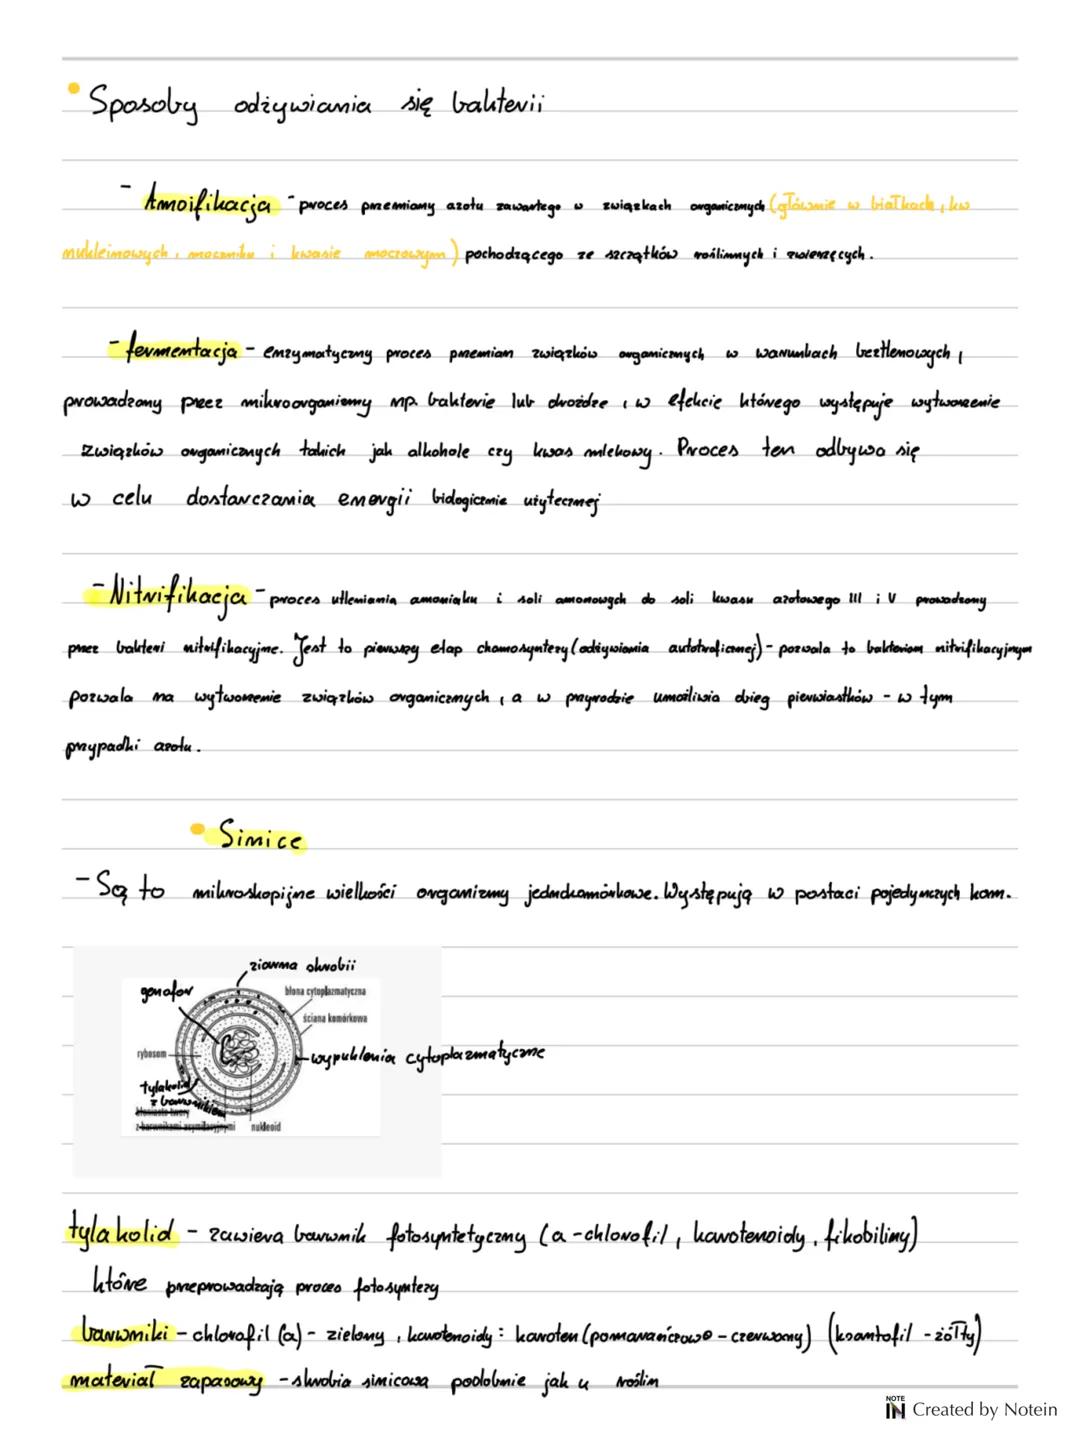 • Sposoby odżywiania się bakterii
- Amoifikacja - proces przemiany azotu zawartego w związkach organicznych (głównie w białkach, kw
nukleinowych, moczniku i kwasie moczowym) pochodzącego ze szczątków roślinnych i zwierzęcych.
- fermentacja - enzymatyczny proces przemian związków organicznych w warunkach beztlenowych,
prowadzony przez mikroorganizmy np. bakterie lub drożdże, w efekcie którego występuje wytworzenie
związków organicznych takich jak alkohole czy kwas mlekowy. Proces ten odbywa się
w celu dostarczania energii biologicznie użytecznej
- Nitryfikacja - proces utleniania amoniaku i soli amonowych do soli kwasu azotowego III i V prowadzony
przez bakteri nitryfikacyjne. Jest to pierwszy etap chemosyntezy (odżywiania autotroficznej) - pozwala to bakteriom nitryfikacyjnym
pozwala na wytworzenie związków organicznych, a w przyrodzie umożliwia obieg pierwiastków - w tym
przypadki azotu.
• Sinice
- Są to mikroskopijne wielkości organizmy jednokomórkowe. Występują w postaci pojedynczych kom.
ziarna skrobii
genofor
błona cytoplazmatyczna
ściana komórkowa
rybosom
wypuklenia cytoplazmatyczne
tylakoid
z barwnikiem
kłosiaste twory
z barwnikami asymilacyjnymi
nukleoid
tylakolid - zawiera barwnik fotosyntetyczny (a-chlorofil, karotenoidy, fikobiliny)
które przeprowadzają proces fotosyntezy
barwniki - chlorofil (a) - zielony, karotenoidy: karoten (pomarańczowo - czerwony) (ksantofil - żółty)
materiał zapasowy - skrobia sinicowa podobnie jak u roślin
NOTE
IN Created by Notein